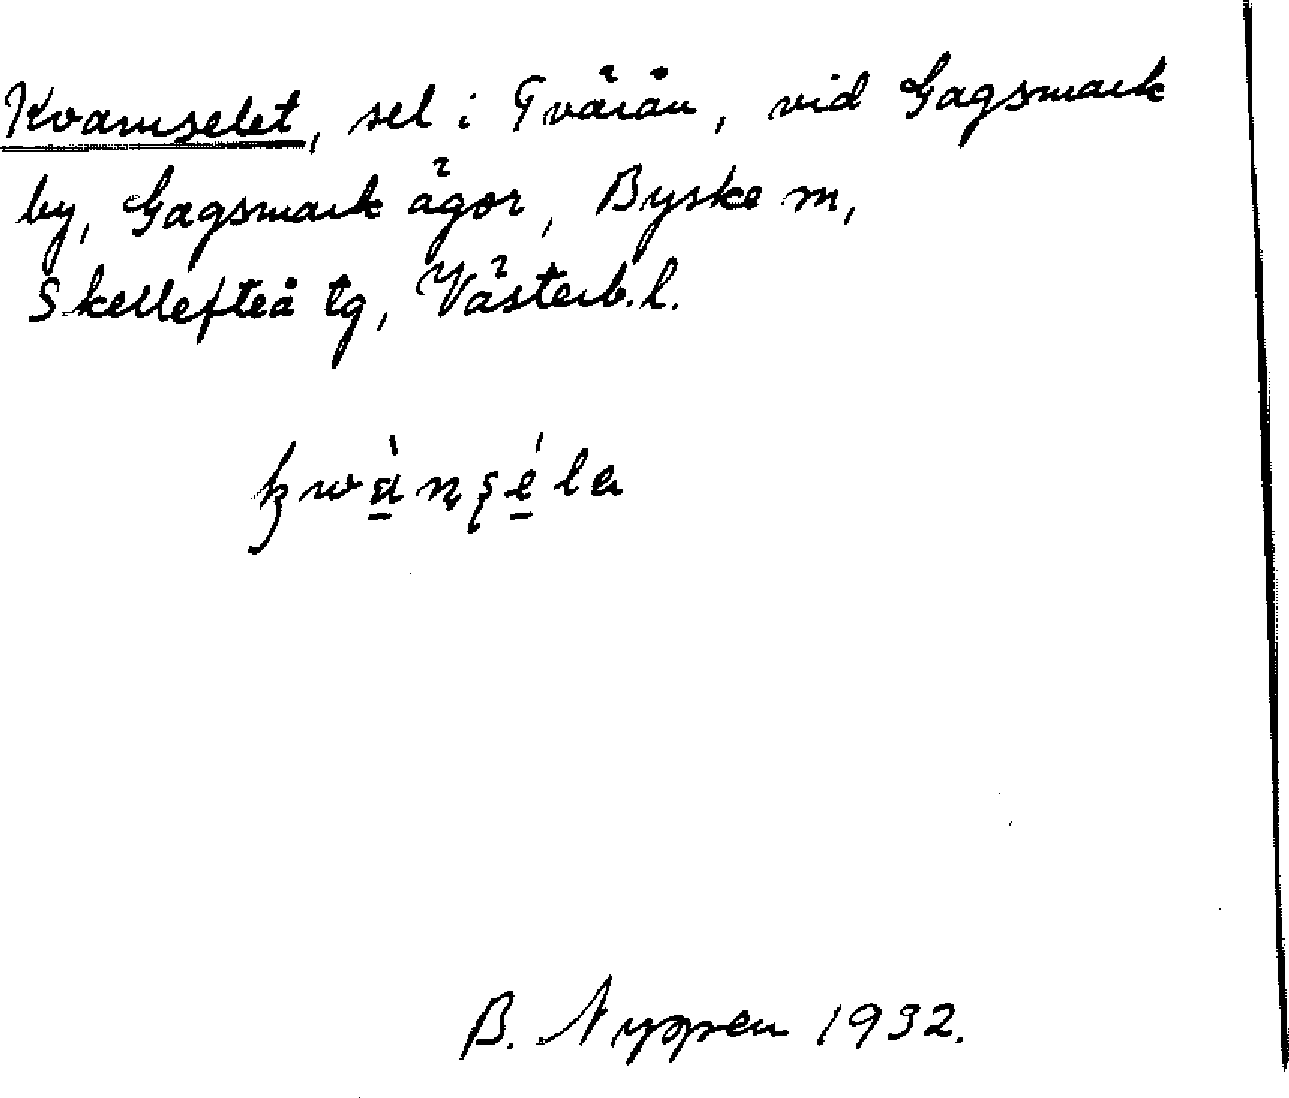 Kvarnselet, sel i Tvärån, vid Gagsmark
by, Gagsmark ägor, Byske sn,
Skellefteå tg, Västerb. l.
B. Nyppen 1932.